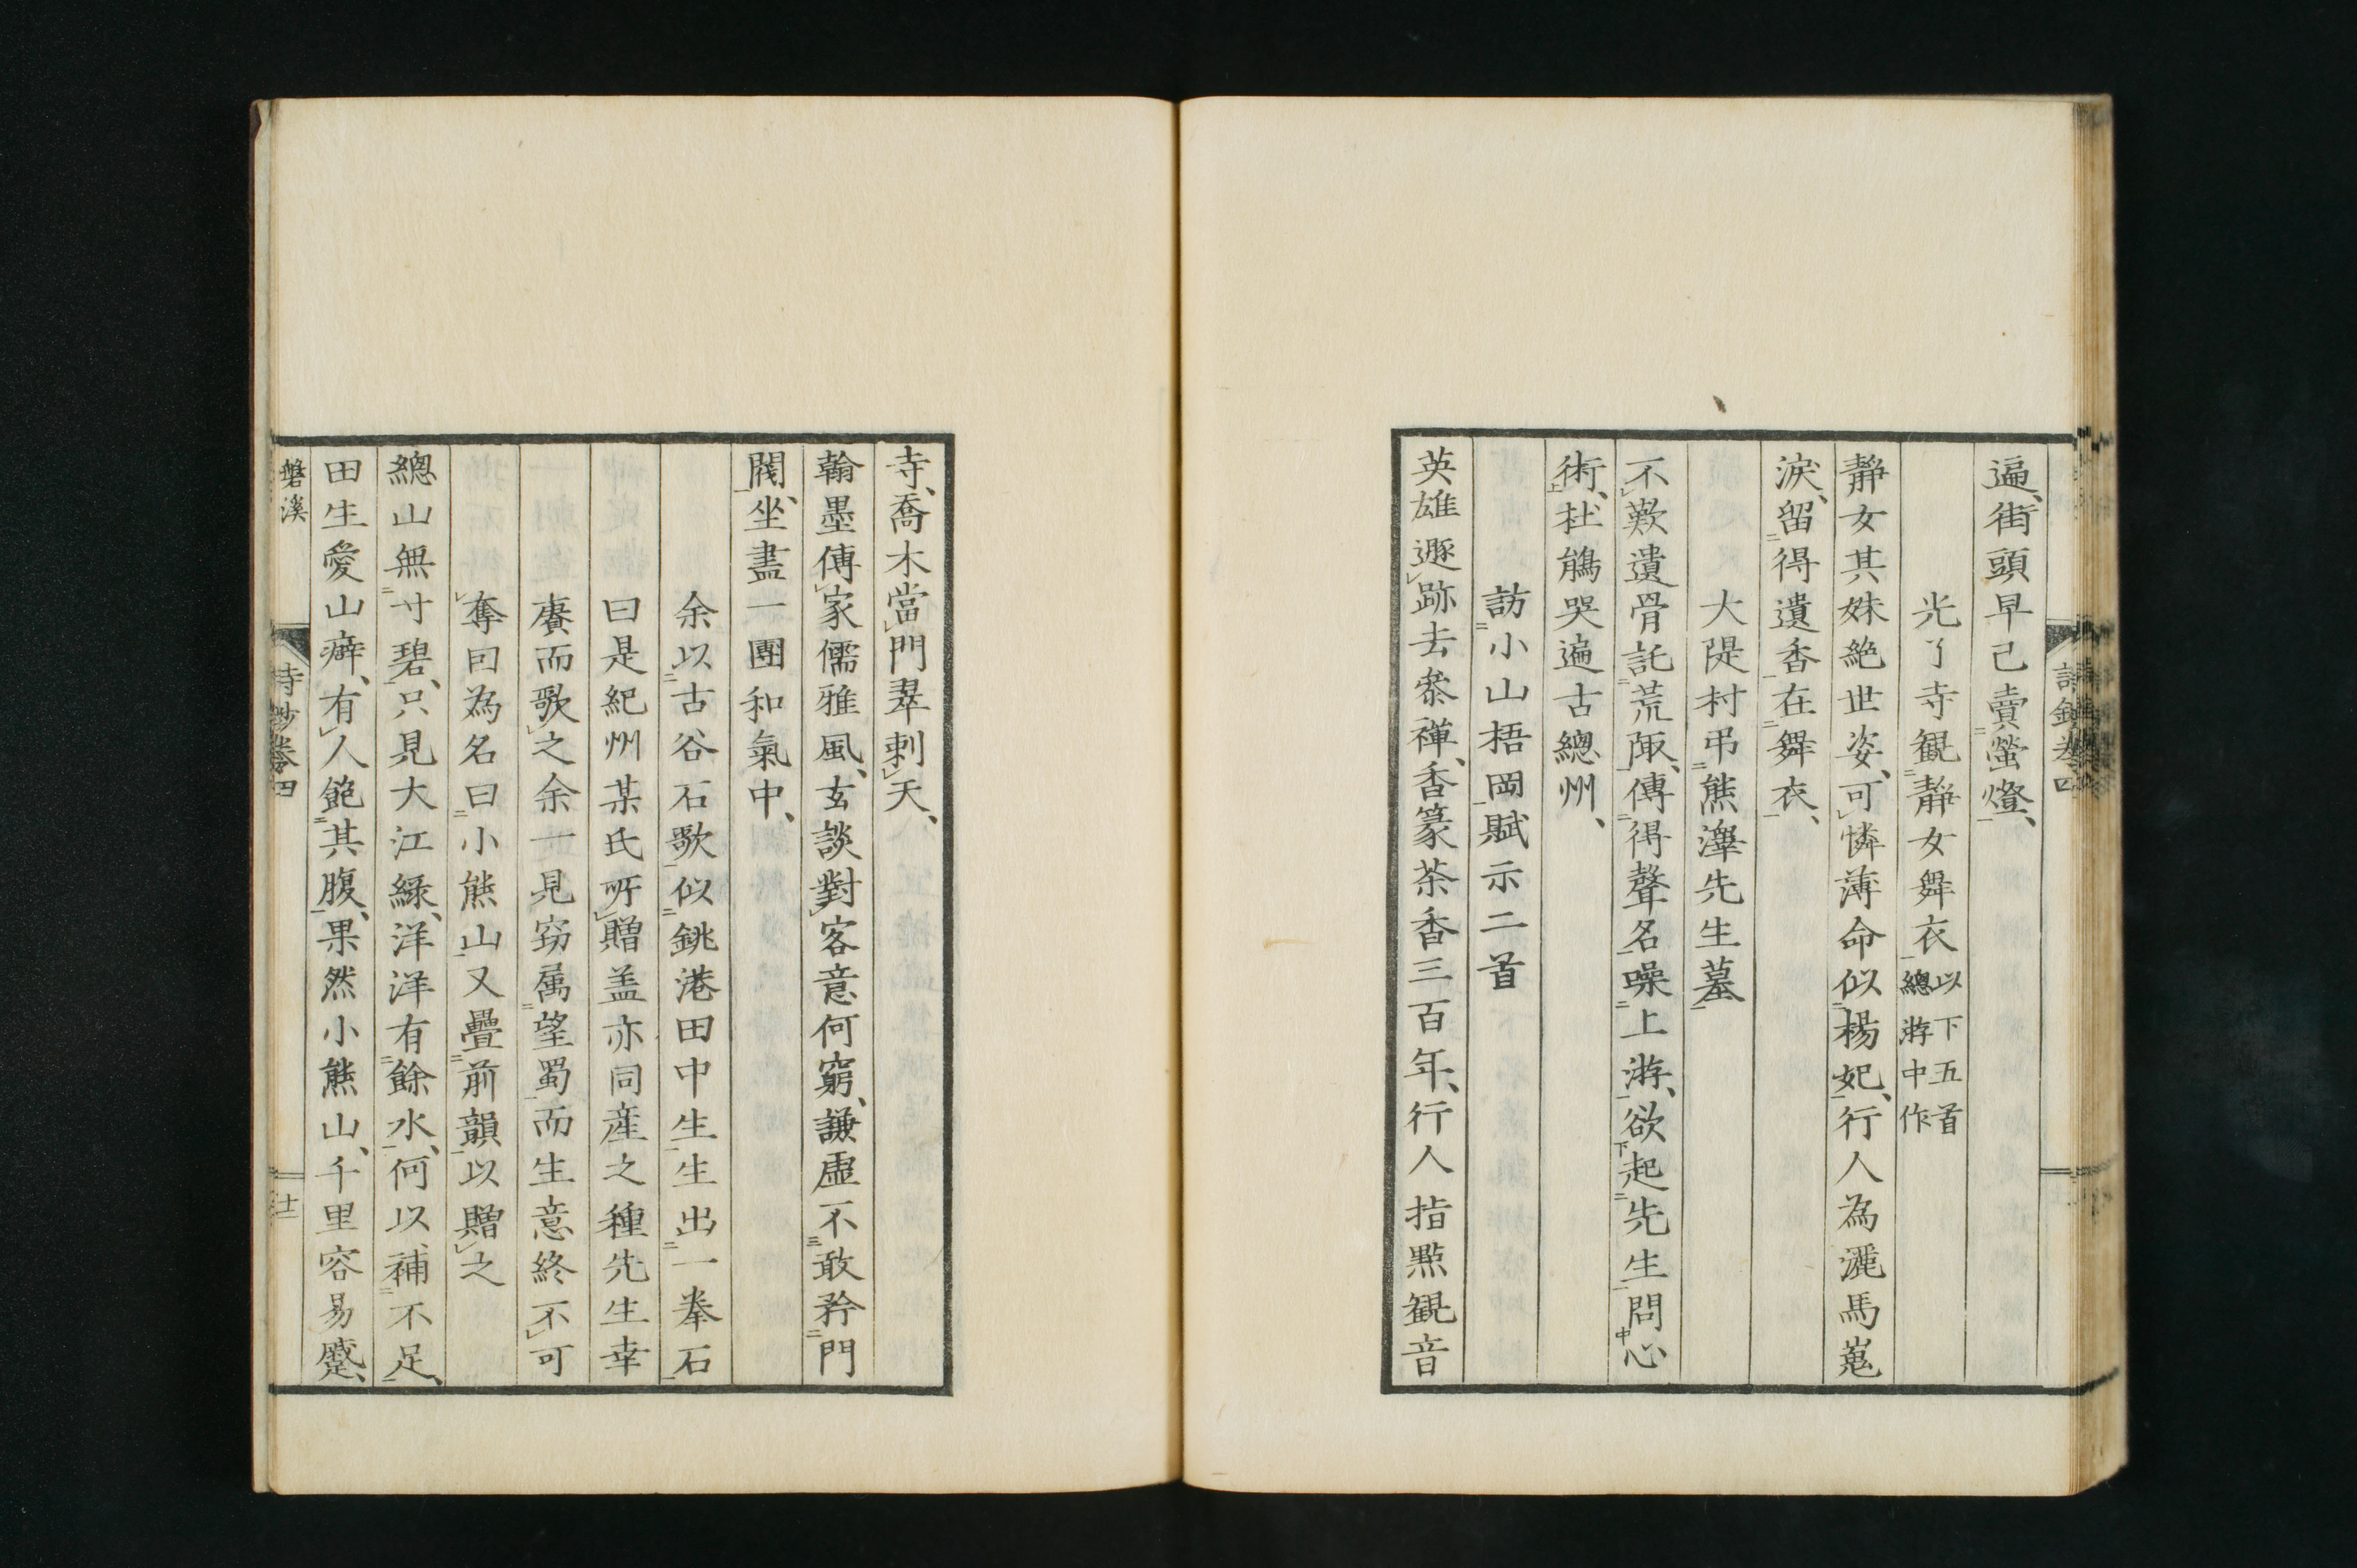 遍、街頭早已賣螢燈、
光了寺観静女舞衣 以下五首總游中作
靜女其姝絶世姿、可憐薄命似楊妃、行人為灑馬嵬
淚、留得遺香在舞衣、
大隄村弔熊澤先生墓
不歎遺骨託荒陬、傳得聲名噪上游、欲起先生問心
術、杜鵑哭遍古總州、
訪小山梧岡賦示二首
英雄遯跡去叅禪、香篆茶香三百年、行人指點観音
寺、喬木當門翠刺天、
翰墨傳家儒雅風、玄談對客意何窮、謙虛不敢矜門
閥、坐盡一團和氣中、
余以古谷石歌似銚港田中生生出一拳石
曰是紀州某氏所贈盖亦同産之種先生幸
賡而歌之余一見窃属望蜀而生意終不可
奪囙為名曰小熊山又疊前韻以贈之
總山無寸碧、只見大江緑、洋洋有餘水、何以補不足、
田生愛山癖、有人飽其腹、果然小熊山、千里容易蹙、
磐溪
詩鈔卷四
十二